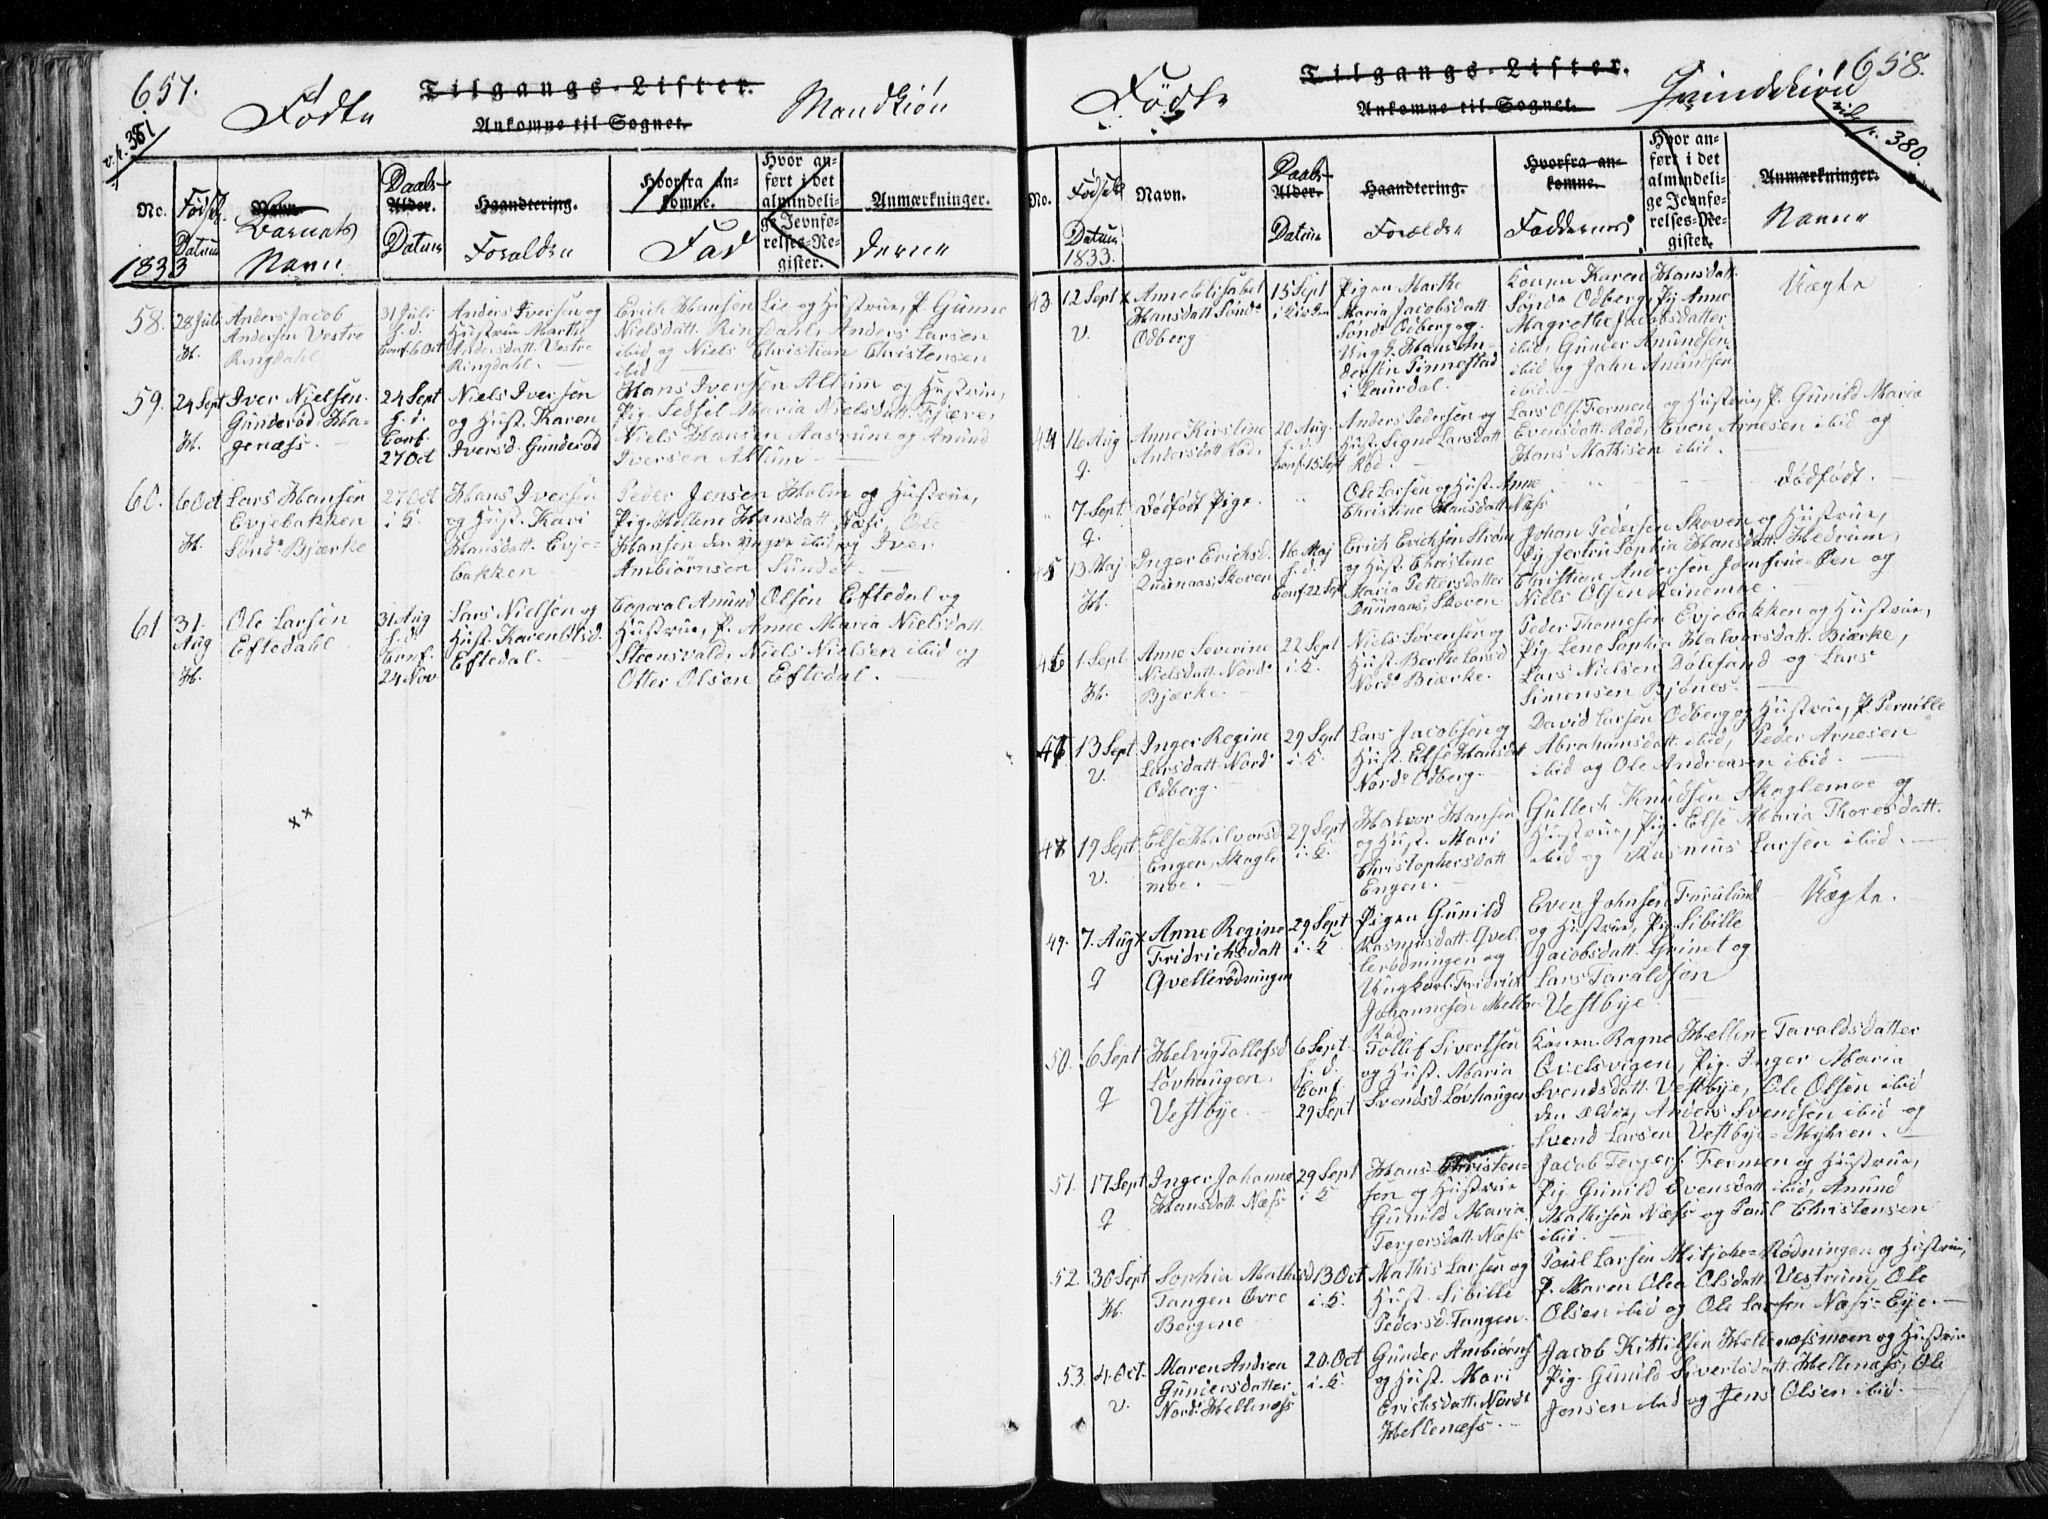 657.
Tilgangs-Lister.
Fødte Mandkiøn
Ankomne til Sognet.
v. p. 381
No.
Fødsels Datum
1833
Navn.
Barnets Navn
Daabs-
Alder.
Datum
Haandtering.
Forældre
Hvorfra an-
komne.
Hvor an-
ført i det
almindeli-
ge Jevnfø-
relses-Re-
gister.
Anmærkninger.
Fadderne
58. 28 Juli H.
Anders Jacob
Andersen Vestre
Ringdahl
31 Juli
h. d.
Conf. 6 Oct
Anders Iversen og
Hustrue Marthe
Andersdatt. Vestre
Ringdahl.
Erich Hansen Lie og Hustrue, P. Gunne
Nielsdatt. Ringdahl, Anders Larsen
ibid og Niels Christian Christensen
ibid
59. 24 Sept H.
Iver Nielsen
Gunderød Ha-
genæss.
24 Sept
h. d.
Conf.
27 Oct
Niels Iversen
og Hust. Karen
Iversd. Gunderød
Hans Iversen Allum og Hustrue,
Pig. Sessel Maria Nielsdatt. Fjære,
Niels Hansen Aasrum og Anund
Iversen Allum
60. 6 Oct H.
Lars Hansen
Evjebakken
Sønd. Bjærke
27 Oct
i K.
Hans Iversen
og Hust. Kari
Hansdatt. Evje-
bakken
Peder Jensen Holm og Hustrue,
Pig. Hellene Hansdatt. Næss, Ole
Hansen den yngre ibid og Iver
Ambiørnsen Sundet.
61 31. Aug H.
Ole Larsen
Eftedahl
31 Aug
h. d.
Conf.
24 Nov
Lars Nielsen og
Hust. Karen Olsd.
Eftedal.
Corporal Anund Olsen Eftedal og
Hustrue, P. Anne Maria Nielsdatt.
Steensvald, Niels Nielsen ibid og
Otter Olsen Eftedal.
x x
658.
Tilgangs-Lister.
Fødte Qvindekiøn
Ankomne til Sognet.
vid. p. 380.
No.
Fødsels Datum
1833.
Navn.
Daabs-
Alder.
Datum
Haandtering.
Forældre
Hvorfra an-
komne.
Faddernes
Hvor an-
ført i det
almindeli-
ge Jevnfø-
relses-Re-
gister.
Anmærkninger.
Navne
43 12 Sept V.
x Anne Elisabet
Hansdatt. Sønd.
Odberg
15 Sept
i Kirken
Pigen Marthe
Maria Jacobsdatt.
Sønd. Odberg og
Ung k. Hans An-
dersen Finnestad
i Laurdal.
Konen Karen Hansdatt.
Sønd. Odberg, Pig. Anne
Magrethe Jacobsdatter
ibid, Gunder Anundsen
ibid og John Anundsen
ibid.
Uægte
44 16 Aug Q.
Anne Kirstine
Andersdatt. Rød.
20 Aug.
h. d.
Conf. 15 Sept
Anders Pedersen og
Hust. Signe Larsdatt
Rød.
Lars Ols. Fermen og Hustrue, P. Gunild Maria
Evensdatt. Rød, Even Arnesen ibid og
Hans Mathisen ibid.
" 7. Sept. Q.
Dødfødt Pige.
"
Ole Larsen og Hust. Anne
Christine Hansdatt. Næss
Dødfødt.
45 13 Maj H.
Inger Erichsd.
Duunaas, Skoven
16 Maj
h. d.
Conf. 22 Sept
Erich Erichsen Strøm
og Hust. Christine
Maria Pettersdatter
Duunaas, Skoven
Johan Pedersen Skoven og Hustrue,
Pig. Jertru Sophia Hansdatt. Hedrum,
Christian Andersen Jomfrue-Øen og
Niels Olsen Reinemoe.
46 1 Sept H.
Anne Severine
Nielsdatt. Nord.
Bjærke.
22 Sept
i K.
Niels Sørensen og
Hust. Berthe Larsd
Nord. Biærke.
Peder Thomesen Evjebakken og Hustrue,
Pig. Lene Sophia Halvorsdatt. Biærke,
Lars Nielsen Dølesand og Lars
Simensen Bjønes.
47 13 Sept V.
Inger Regine
Larsdatt. Nord.
Odberg.
29 Sept
i K.
Lars Jacobsen og
Hust. Else Hansdatt
Nord. Odberg.
David Larsen Odberg og Hustrue, P. Pernille
Abrahamsdatt. ibid, Peder Arnesen
ibid og Ole Andreasen ibid.
48 19 Sept V.
Else Halvorsd
Engen, Skagle
moe.
29 Sept
i K.
Halvor Hansen
og Hust. Mari
Christophersdatt
Engen.
Gullech Knudsen Skaglemoe og
Hustrue, Pig. Else Maria Thoresdatt.
ibid og Rasmus Larsen ibid.
49. 7. Aug Q
x Anne Regine
Fridrichsdatt
Qvellerødningen
29 Sept
i K
Pigen Gunild
Rasmusdatt. Qvel-
lerødningen og
Ungkarl Fridrich
Johannesen Mellom
Rød.
Even Johnsen Furulund
og Hustrue, Pig. Sibille
Jacobsdatt. Grinet og
Lars Taraldsøn
Vestbye
Uægte.
50. 6 Sept Q
Helvig Tollefsd
Løvhaugen,
Vestbye
6 Sept.
h. d.
Conf.
29 Sept
Tollif Sivertsen
og Hust. Maria
Svendsd. Løvhaugen
Konen Ragne Hellene Taraldsdatter
Qvelsvigen, Pig. Inger Maria
Svendsdatt. Vestbye, Ole Olsen ibid
den ældre, Anders Svendsen ibid og
Svend Larsen Vestbye-Myhren.
51. 17 Sept Q
Inger Johanne
Hansdatt. Næss
29 Sept
i K
Hans Christen-
sen og Hustrue
Gunild Maria
Tergersdatt. Næss
Jacob Tergers. Fermen og Hustrue,
Pig. Gunild Evensdatt. ibid, Anund
Mathisen Næss og Poul Christensen
ibid.
52. 30 Sept H.
Sophia Mathisd
Tangen Øvre
Bergene
13 Oct
i K.
Mathis Larsen og
Hust. Sibille
Pedersd. Tangen.
Poul Larsen Rødningen og Hustrue,
P. Maren Olea Olsdatt. Vestrum, Ole
Olsen ibid og Ole Larsen Næss-Eje.
53. 4. Oct. V.
Maren Andrea
Gundersdatter
Nord. Hellenæss
20. Oct
i K.
Gunder Ambiørns
og Hust. Mari
Erichsdatt. Nord.
Hellenæss.
Jacob Kittilsen Hellenæssmoen og Hustrue
Pig. Gunild Sivertsdatt. Hellenæss, Ole
Jensen ibid og Jens Olsen ibid.